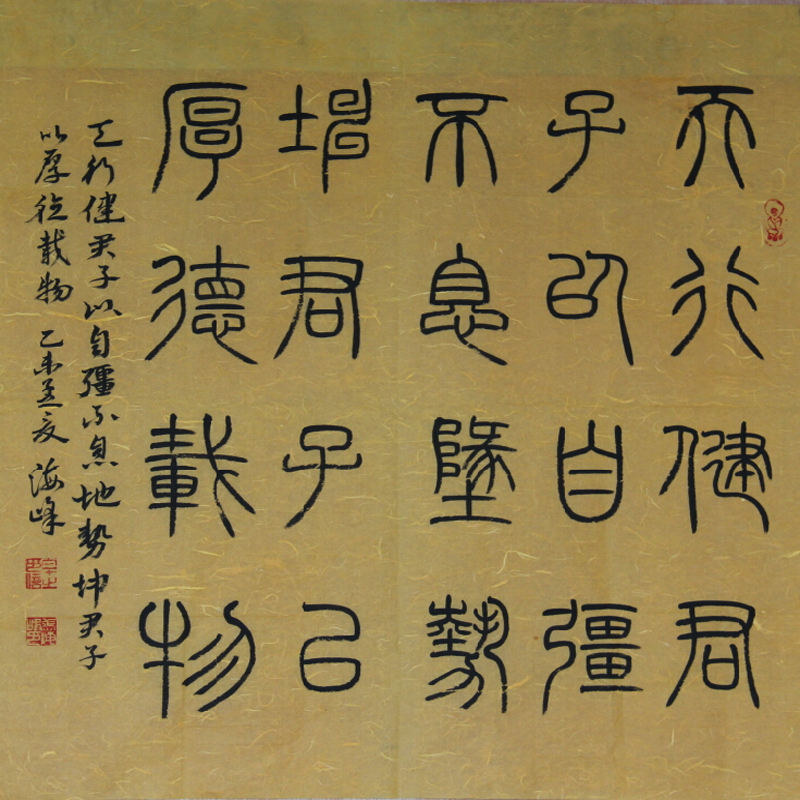 天行健君
子以自彊
不息墬勢
坤君子㠯
厚德載物
天行健君子以自彊不息地勢坤君子
以厚德載物 乙未孟夏 海峰